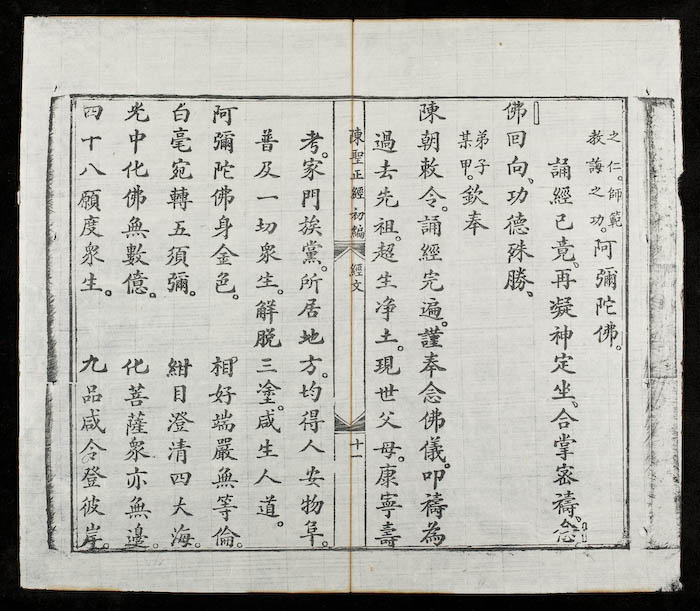 之仁。師範
教誨之功。阿彌陀佛。
誦經已竟、再凝神定坐、合掌密禱、念
佛回向、功德殊勝、
弟子
某甲。欽奉
陳朝敕令。誦經完遍。謹奉念佛儀。叩禱為
過去先祖。超生净土。現世父母。康寧壽
陳聖正經初編 經文 十一
考。家門族黨。所居地方。均得人安物阜。
普及一切衆生。解脫三塗。咸生人道。
阿彌陀佛身金色。 相好端嚴無等倫。
白毫宛轉五須彌。 紺目澄清四大海。
光中化佛無數億。 化菩薩衆亦無邊。
四十八願度衆生。 九品咸令登彼岸。